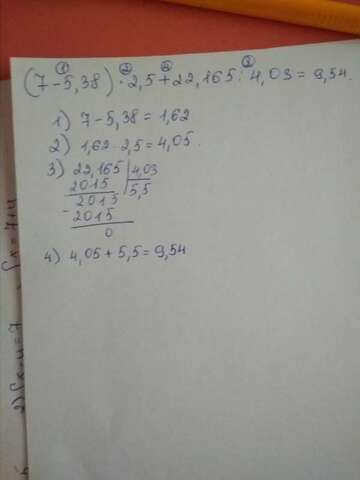 ① ② ④ ③
(7-5,38)·2,5+22,165:4,03=9,54.
1) 7-5,38=1,62
2) 1,62·2,5=4,05.
3) 22,165 | 4,03
2015 | 5,5
- 2015
2015
0
4) 4,05+5,5=9,54